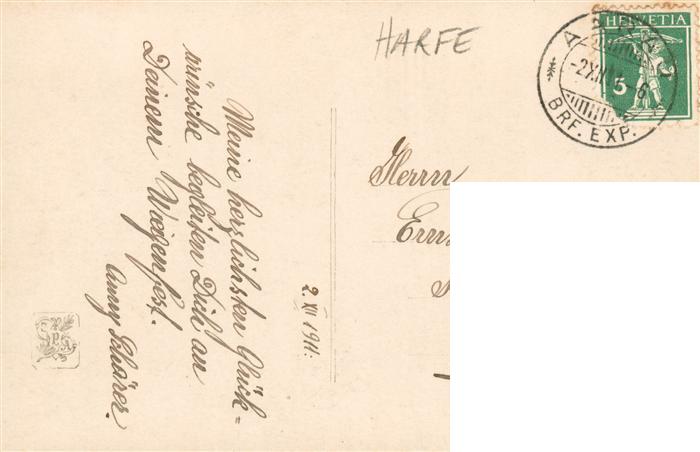 HARFE
HELVETIA
5
AARAU
-2.XII.11. 6
BRF. EXP.
Meine herzlichsten Glück=
wünsche begleiten Dich an
Deinem Wiegenfest.
Anny Schärer.
2. XII 1911.
Herrn